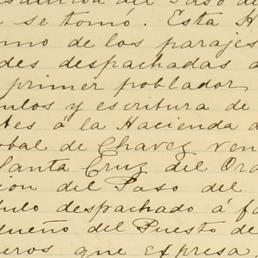 del Paso de
se tomó. Esta H
mo de los parajes
des despachadas a
primer poblador
ulos y escritura de
tes á la Hacienda d
obal de Chavez ven
Santa Cruz del Ora
ion del Paso del
ulo despachado á fa
dueño del Puesto de
eros que expresa